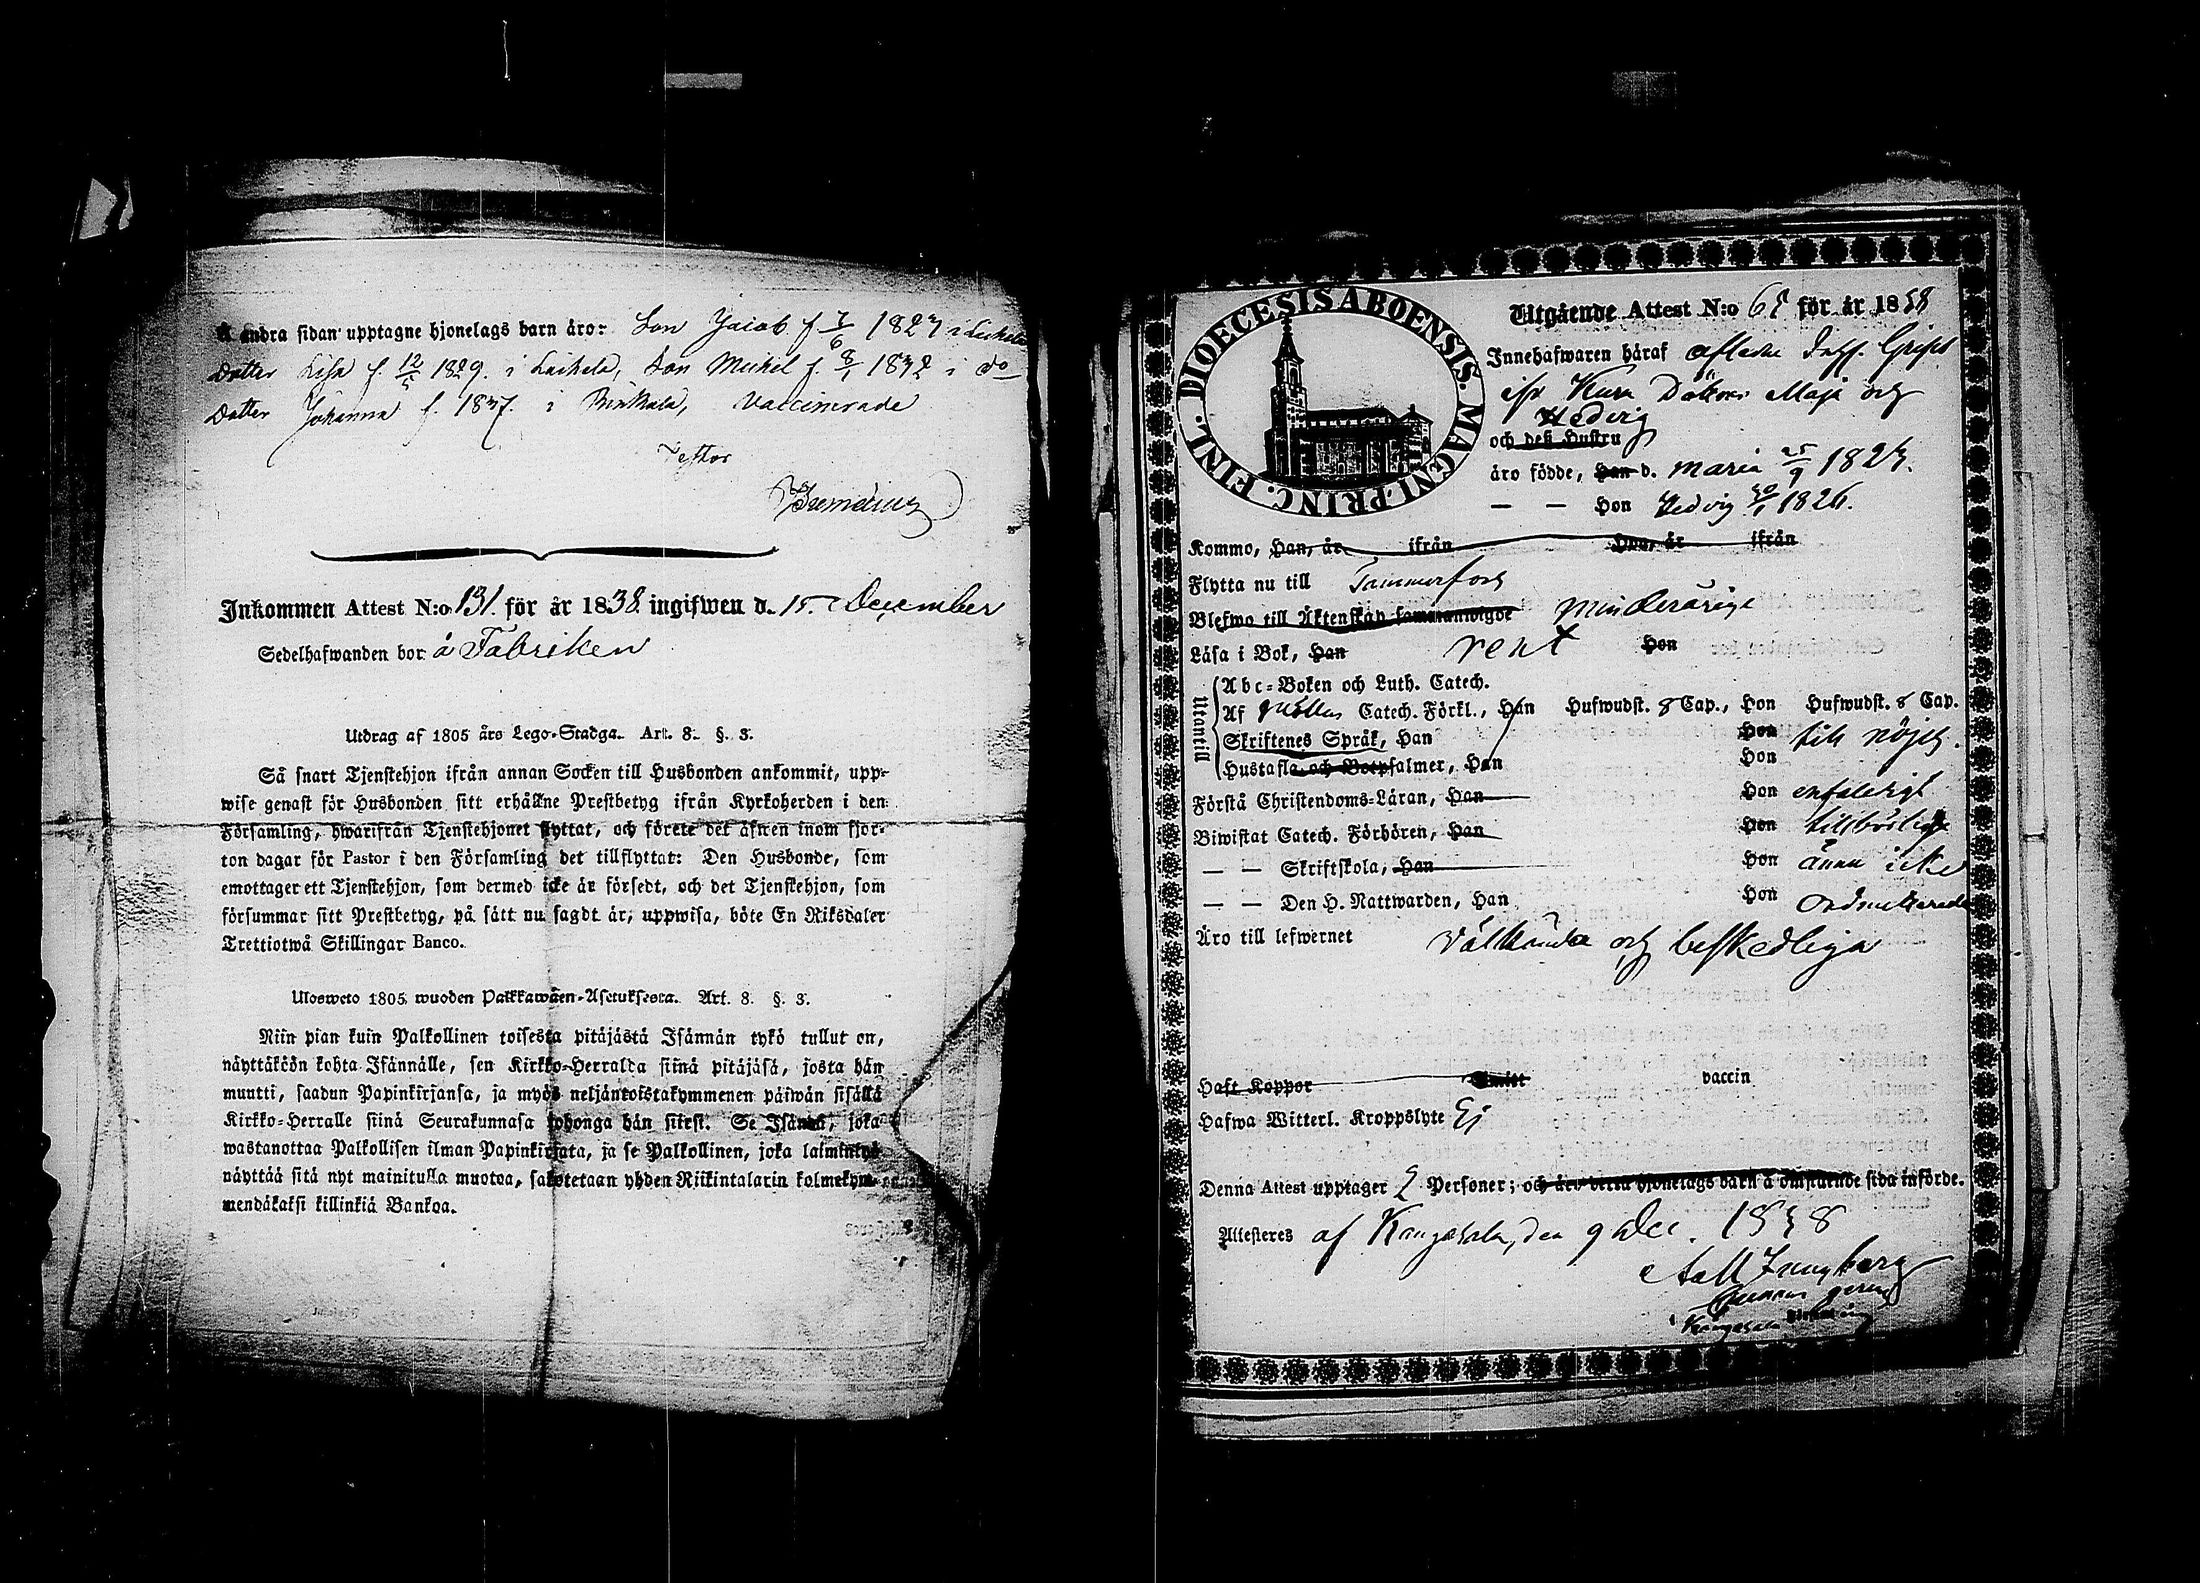 Å andra sidan upptagne hjonelags barn äro: Son Jacob f. 7/6 1823 i
Datter Lisa f. 12/5 1829. i Laihela, Son Michel f. 8/1 1832 i do
Datter Johanna f. 1837. i Birkkala, Vaccinerade
Inkommen Attest N:o 131. för år 1838. ingifwen d. 15. December
Sedelhafwanden bor å Fabriken
Utdrag af 1805 års Lego-Stadga. Art. 8. §. 3.
Så snart Tjenstehjon ifrån annan Socken till Husbonden ankommit, upp-
wise genast för Husbonden sitt erhållne Prestbetyg ifrån Kyrkoherden i den
Församling, hwarifrån Tjenstehjonet flyttat, och förete det äfwen inom fjor-
ton dagar för Pastor i den Församling det tillflyttat: Den Husbonde, som
emottager ett Tjenstehjon, som dermed icke är försedt, och det Tjenstehjon, som
försummar sitt Prestbetyg, på sätt nu sagdt är, uppwisa, böte En Riksdaler
Trettiotwå Skillingar Banco.
Ulosweto 1805 wuoden Palkkawäen-Asetuksesta. Art. 8. §. 3.
Niin pian kuin Palkollinen toisesta pitäjästä Isännän tykö tullut on,
näyttäköön kohta Isännälle, sen Kirkko-Herralda siinä pitäjäsä, josta hän
muutti, saadun Papinkirjansa, ja myös neljäntoistakymmenen päiwän sisällä
Kirkko-Herralle siinä Seurakunnasa johonga hän siirsi. Se Isändä, joka
wastanottaa Palkollisen ilman Papinkirjata, ja se Palkollinen, joka laiminlyö
näyttää sitä nyt mainitulla muotoa, sakotetaan yhden Riikintalarin kolmekym-
mendäkaksi killinkiä Bankoa.
DIOECESIS ABOENSIS. MAGNI. PRINC. FINL.
Utgående Attest N:o 65 för år 1838
Innehafwaren häraf afledne
Döttrar Maja och
Hedvig
och dess Hustru
äro födde, Han d. Maria 25/9 1823.
— — Hon Hedvig 30/1 1826.
Kommo, Han, år ifrån Hon, år ifrån
Flytta nu till Tammerfors
Blefwo till Äktenskap sammanwigde minderårige
Läsa i Bok, Han rent Hon
Utantill
Abc-Boken och Luth. Catech.
Af Möllers Catech. Förkl., Han Hufwudst. 8 Cap., Hon Hufwudst. 8 Cap.
Skriftenes Språk, Han Hon till nöjes.
Hustafla och Botpsalmer, Han Hon
Förstå Christendoms-Läran, Han Hon enfaldigt
Biwistat Catech. Förhören, Han Hon tillbörligt
— — Skriftskola, Han Hon ännu icke
— — Den H. Nattwarden, Han Hon oadmitterade
Äro till lefwernet välkända och beskedliga
Haft Koppor Smitt vaccin
Hafwa Witterl. Kroppslyte Ej
Denna Attest upptager 2 Personer; och äro detta hjonelags barn å omstående sida införde.
Attesteres af Kangasala, den 9 Dec. 1838
Kangasala